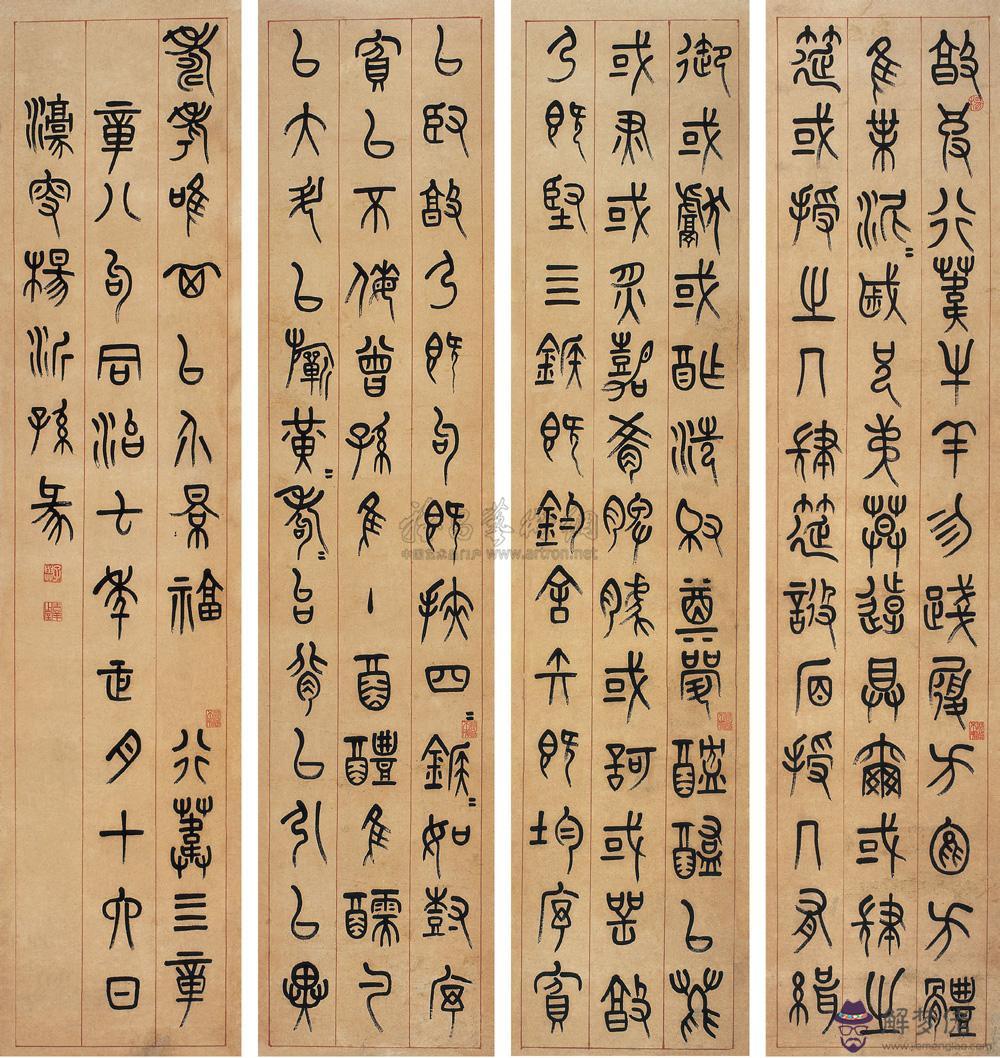 敦彼行葦牛羊勿踐履方苞方體
隹葉泥=戚兄弟莫遠具爾或肆之
筵或授之几肆筵設席授几有緝
御或獻或酢洗爵奠斝醓醢以薦
或燔或炙嘉肴脾臄或歌或咢敦
弓既堅亖鍭既鈞舍矢既均序賓
以臤敦弓既句既挾四=鍭=如尌序
賓以不侮曾孫隹丶酉醴隹醹勺
以大斗以祈黃=耇=台背以引以翼
壽考唯祺以介景福 行葦亖章
章八句同治年正月十六日
濠叟楊沂孫篆
www.artron.net
解梦佬
www.jiemenglao.com